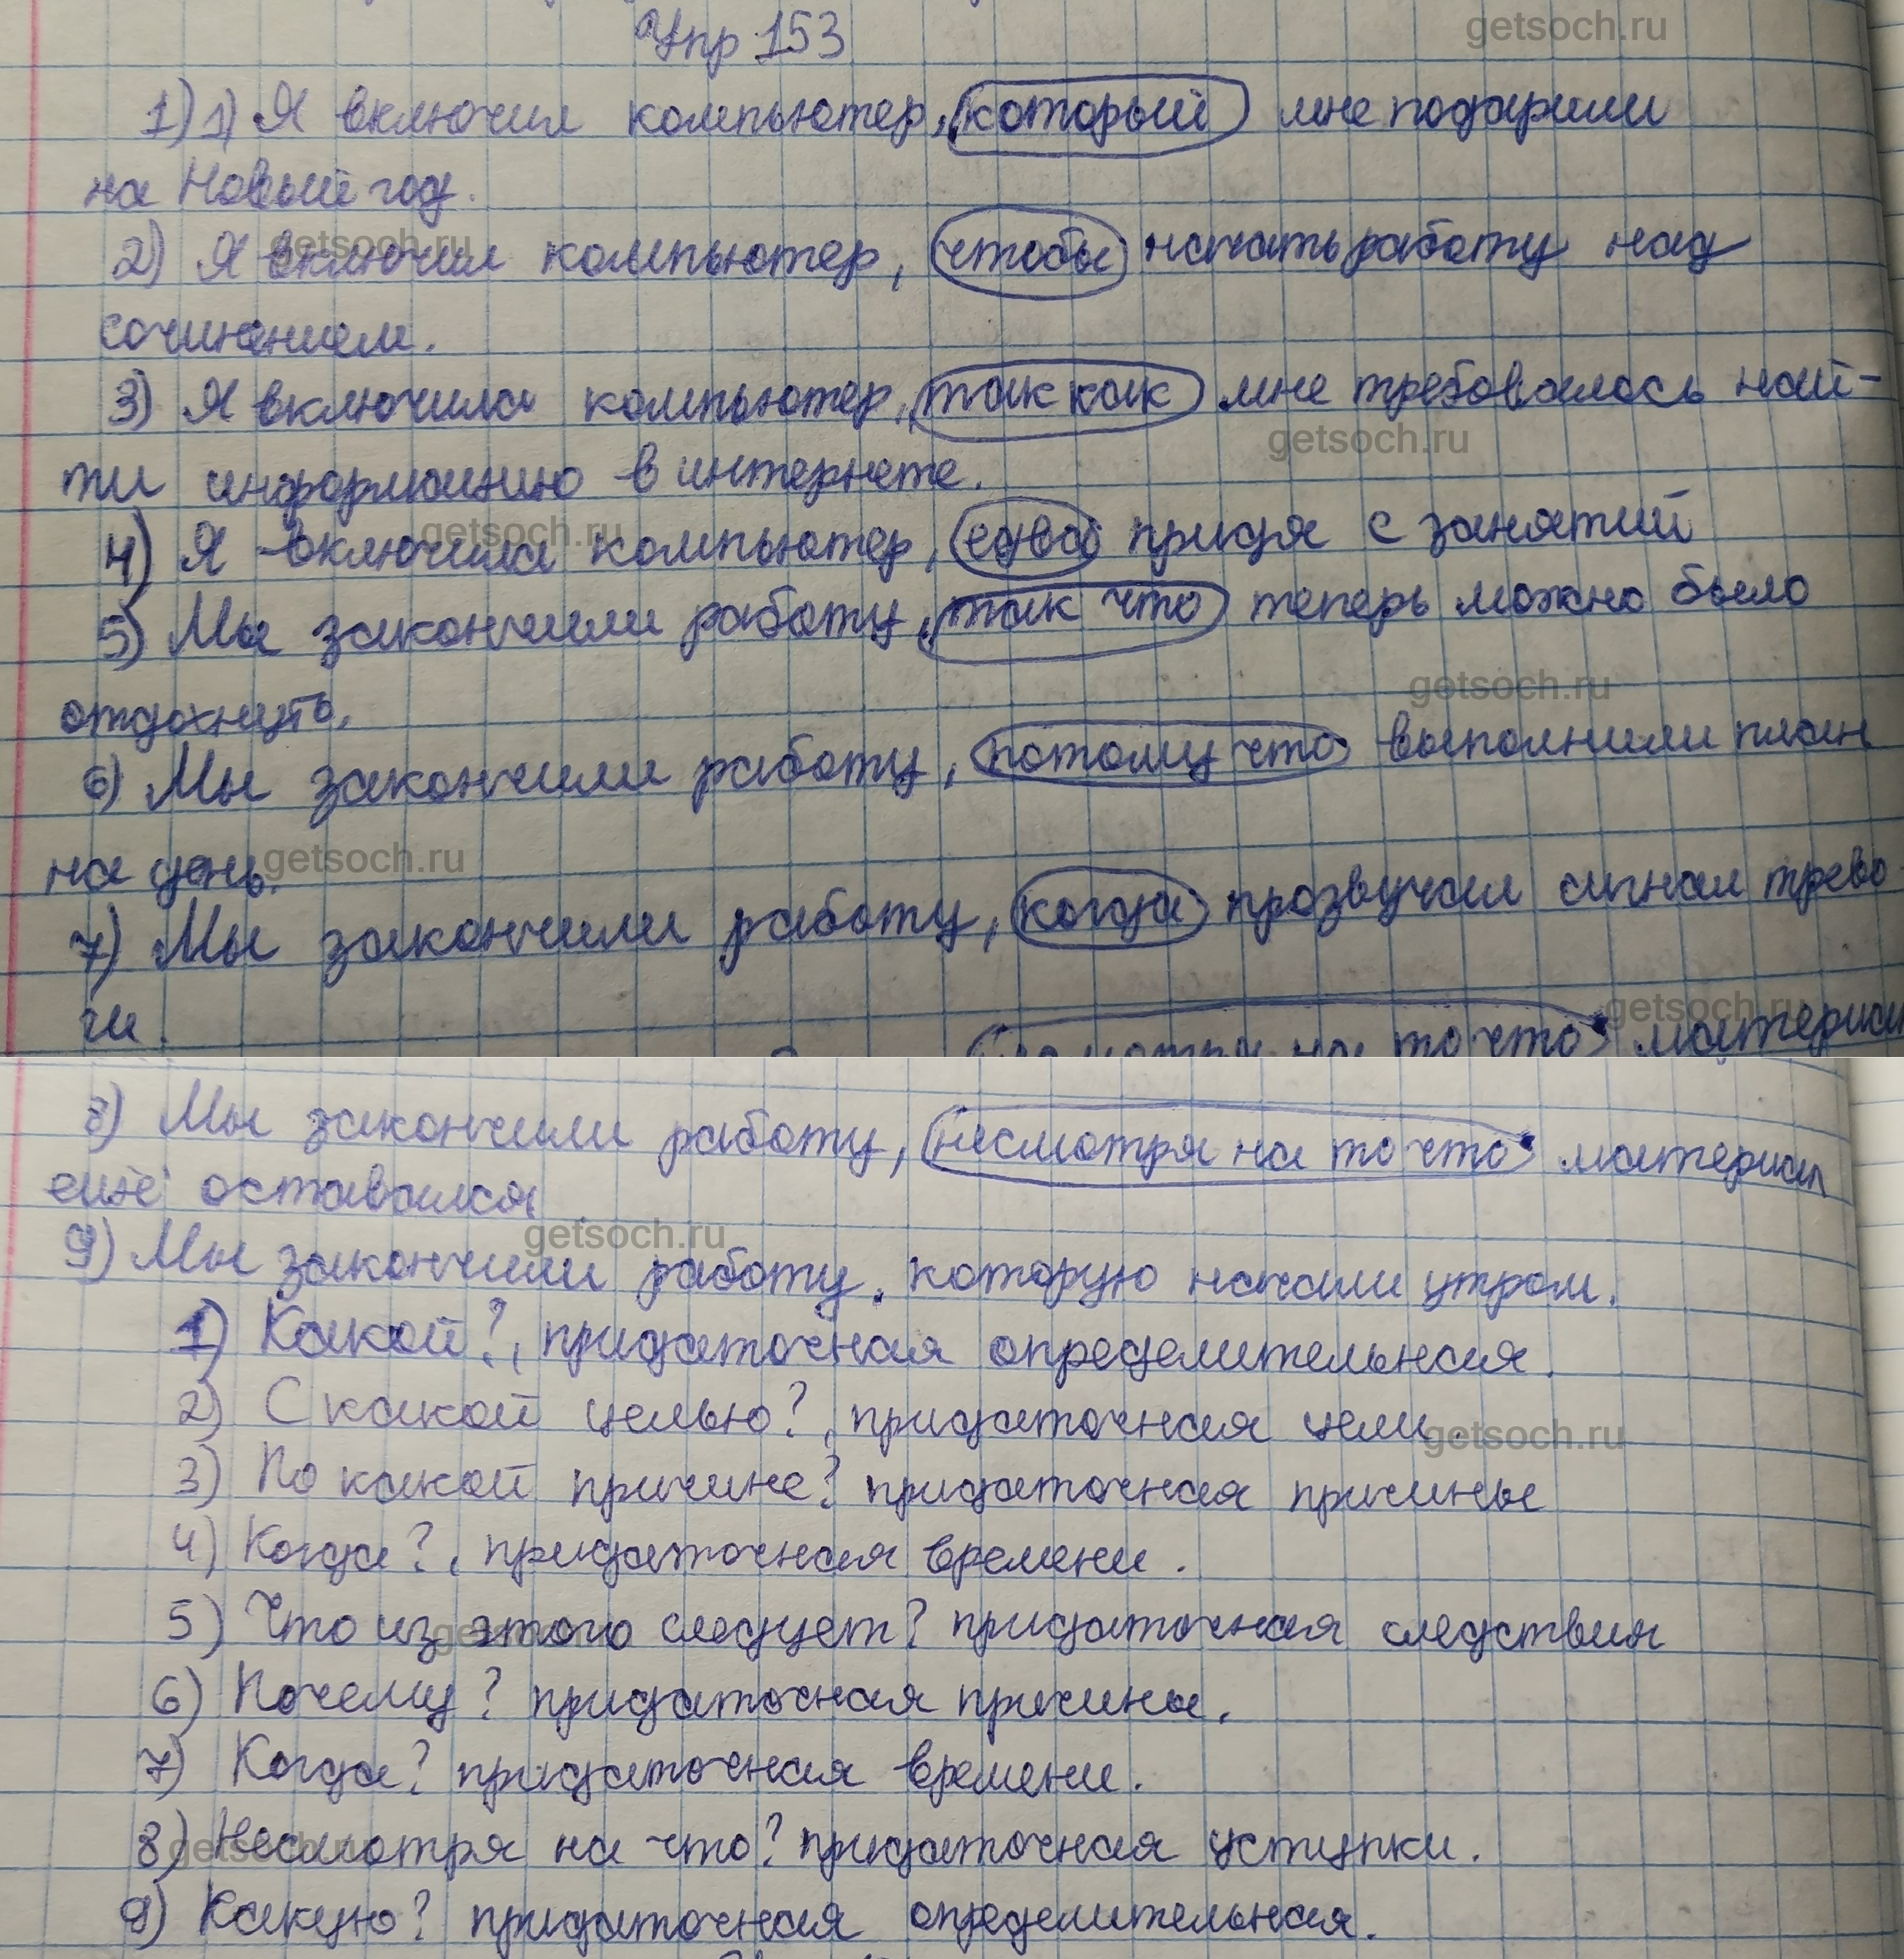 Упр 153
getsoch.ru
1) 1) Я включил компьютер, который мне подарили
на Новый год.
getsoch.ru
2) Я включил компьютер, чтобы начать работу над
сочинением.
3) Я включила компьютер, так как мне требовалось най-
getsoch.ru
ти информацию в интернете.
getsoch.ru
4) Я включила компьютер, едва придя с занятий
5) Мы закончили работу, так что теперь можно было
getsoch.ru
отдохнуть.
6) Мы закончили работу, потому что выполнили план
на день.
getsoch.ru
7) Мы закончили работу, когда прозвучал сигнал трево-
ги.
getsoch.ru
на то что материал
8) Мы закончили работу, несмотря на то что материал
ещё оставался
getsoch.ru
9) Мы закончили работу, которую начали утром.
1) Какой?, придаточная определительная.
2) С какой целью?, придаточная цели.
getsoch.ru
3) По какой причине? придаточная причины
4) Когда?, придаточная времени.
5) Что из этого следует? придаточная следствия
6) Почему? придаточная причины.
7) Когда? придаточная времени.
8) Несмотря на что? придаточная уступки.
getsoch.ru
9) Какую? придаточная определительная.